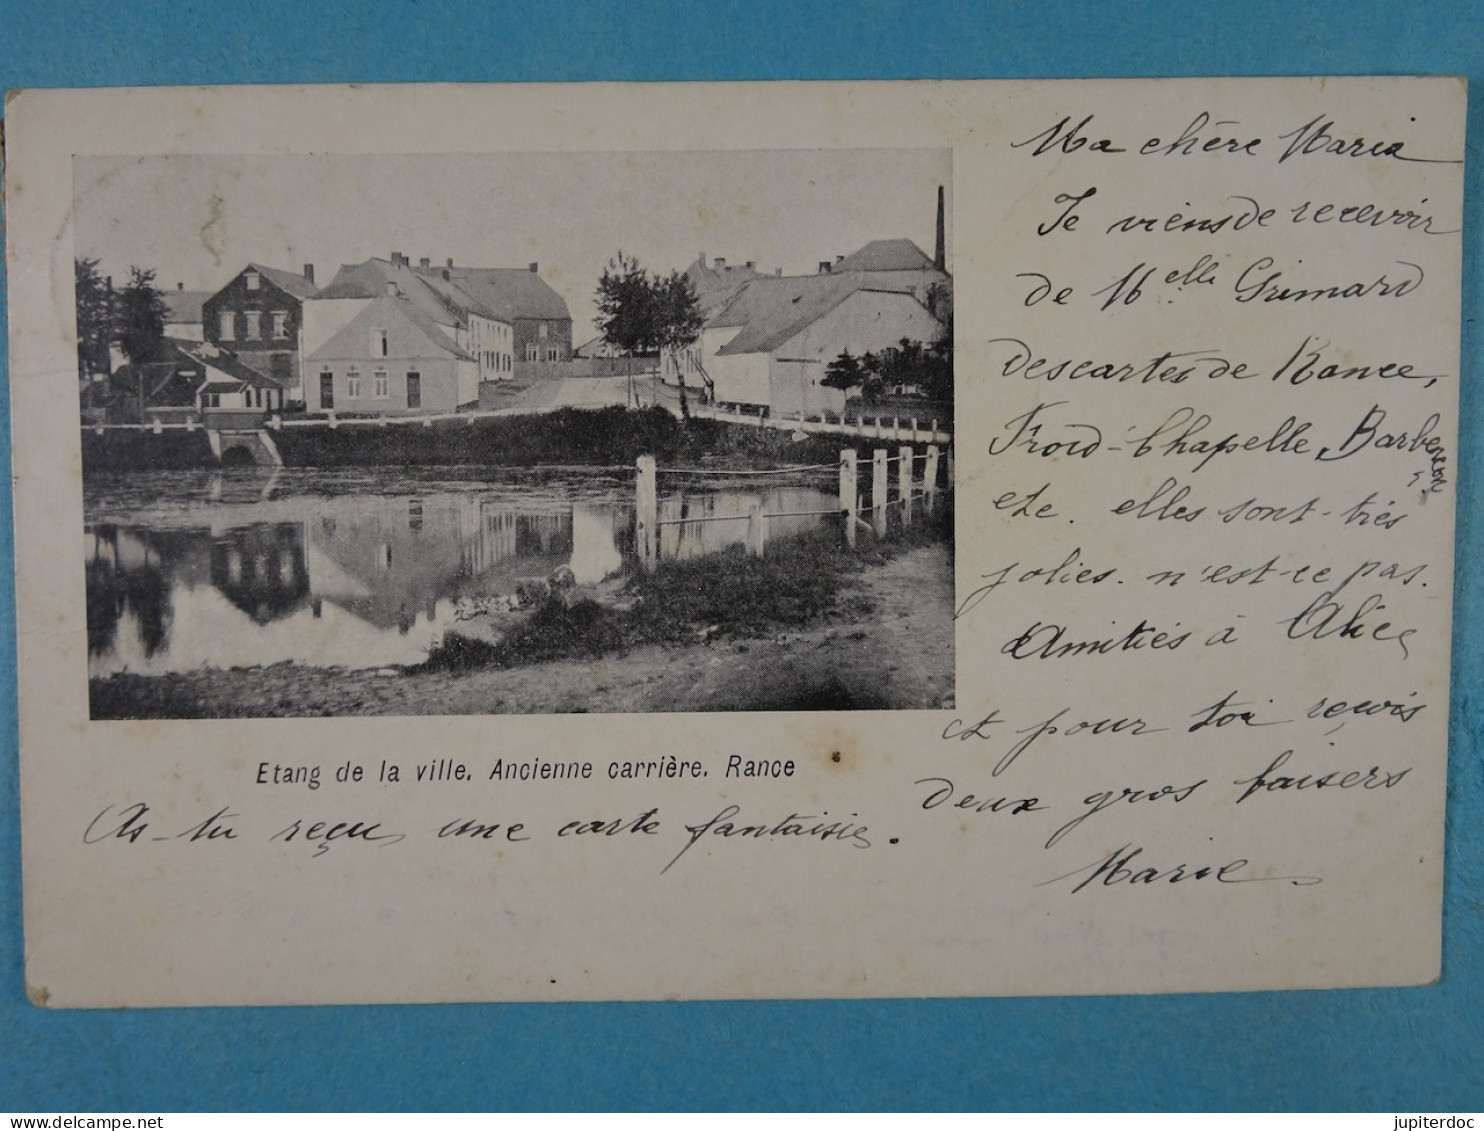 Ma chère Maria
Je viens de recevoir
de Melle Grimard
des cartes de Rance,
Froid-Chapelle, Barbençon
etc. elles sont très
jolies. n'est-ce pas.
Amitiés à Alice
et pour toi reçois
deux gros baisers
Marie
Etang de la ville. Ancienne carrière. Rance
As-tu reçu une carte fantaisie.
www.delcampe.net
jupiterdoc